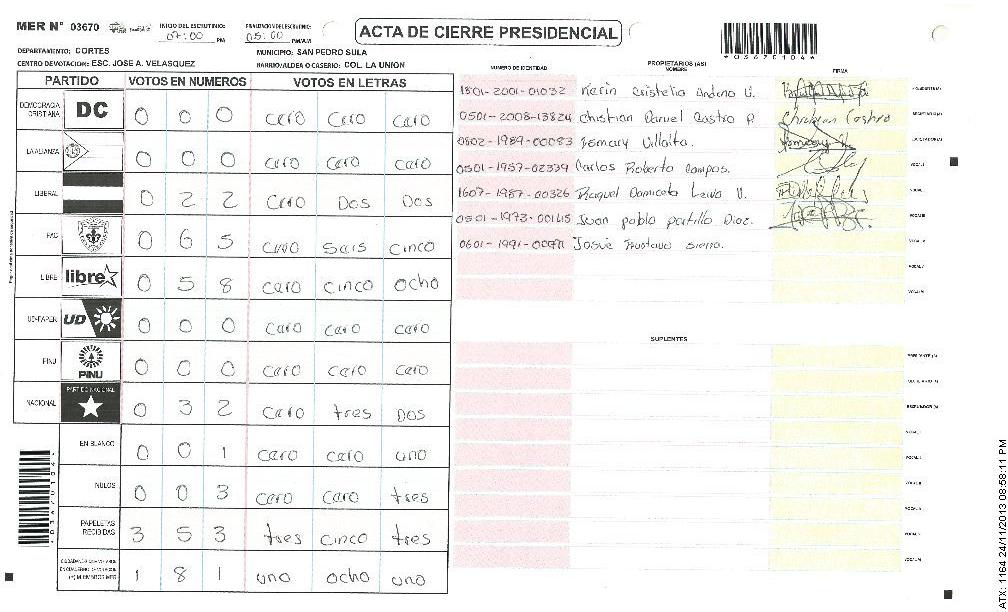 MER N° 03670 INICIO DEL ESCRUTINIO: 07:00 PM FINALIZACION DEL ESCRUTINIO: 05:00 PM/AM
ACTA DE CIERRE PRESIDENCIAL
*03670104*
DEPARTAMENTO: CORTES MUNICIPIO: SAN PEDRO SULA
CENTRO DE VOTACION: ESC. JOSE A. VELASQUEZ BARRIO/ALDEA O CASERIO: COL. LA UNION
PARTIDO VOTOS EN NUMEROS VOTOS EN LETRAS
DEMOCRACIA CRISTIANA DC 0 0 0 cero cero cero
LA ALIANZA 0 0 0 cero cero cero
LIBERAL 0 2 2 cero Dos Dos
PAC 0 6 5 cero seis cinco
LIBRE libre 0 5 8 cero cinco ocho
UD-FAPER UD 0 0 0 cero cero cero
PINU PINU 0 0 0 cero cero cero
NACIONAL PARTIDO NACIONAL 0 3 2 cero tres Dos
EN BLANCO 0 0 1 cero cero uno
NULOS 0 0 3 cero cero tres
PAPELETAS RECIBIDAS 3 5 3 tres cinco tres
(+) MIEMBROS MER 1 8 1 uno ocho uno
NUMERO DE IDENTIDAD PROPIETARIOS (AS) NOMBRE FIRMA
1801-2001-01032 Karin Cristelia Andino V.
0501-2008-13824 Christian Daniel Castro P. Christian Castro SECRETARIO(A)
0802-1989-00083 Ismary Villalta. ESCRUTADOR(A)
0501-1957-02339 Carlos Roberto Campos. VOCAL I
1607-1987-00326 Raquel
0501-1973-00145 Juan pablo portillo Diaz.
0601-1991-00971 Josue Gustavo sierra.
VOCAL V
SUPLENTES
PRESIDENTE (A)
SECRETARIO (A)
ESCRUTADOR (A)
VOCAL I
ATX: 1164 24/11/2013 08:58:11 PM